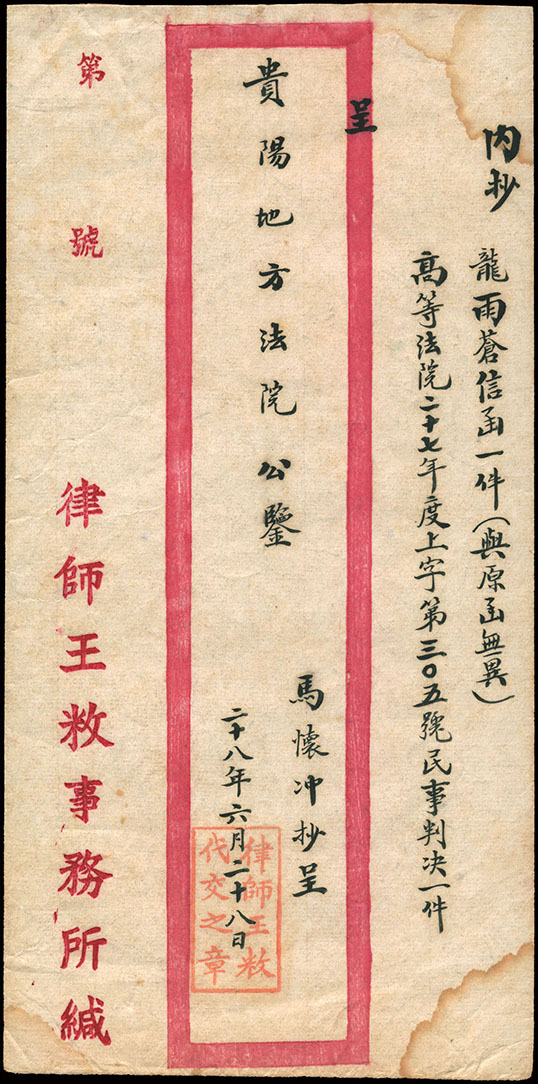 內抄
龍雨蒼信函一件（與原函無異）
高等法院二十七年度上字第三〇五號民事判決一件
呈
貴陽地方法院公鑒
馬懷冲抄呈
二十八年六月二十八日
律師王敉
代交之章
第 號
律師王敉事務所緘